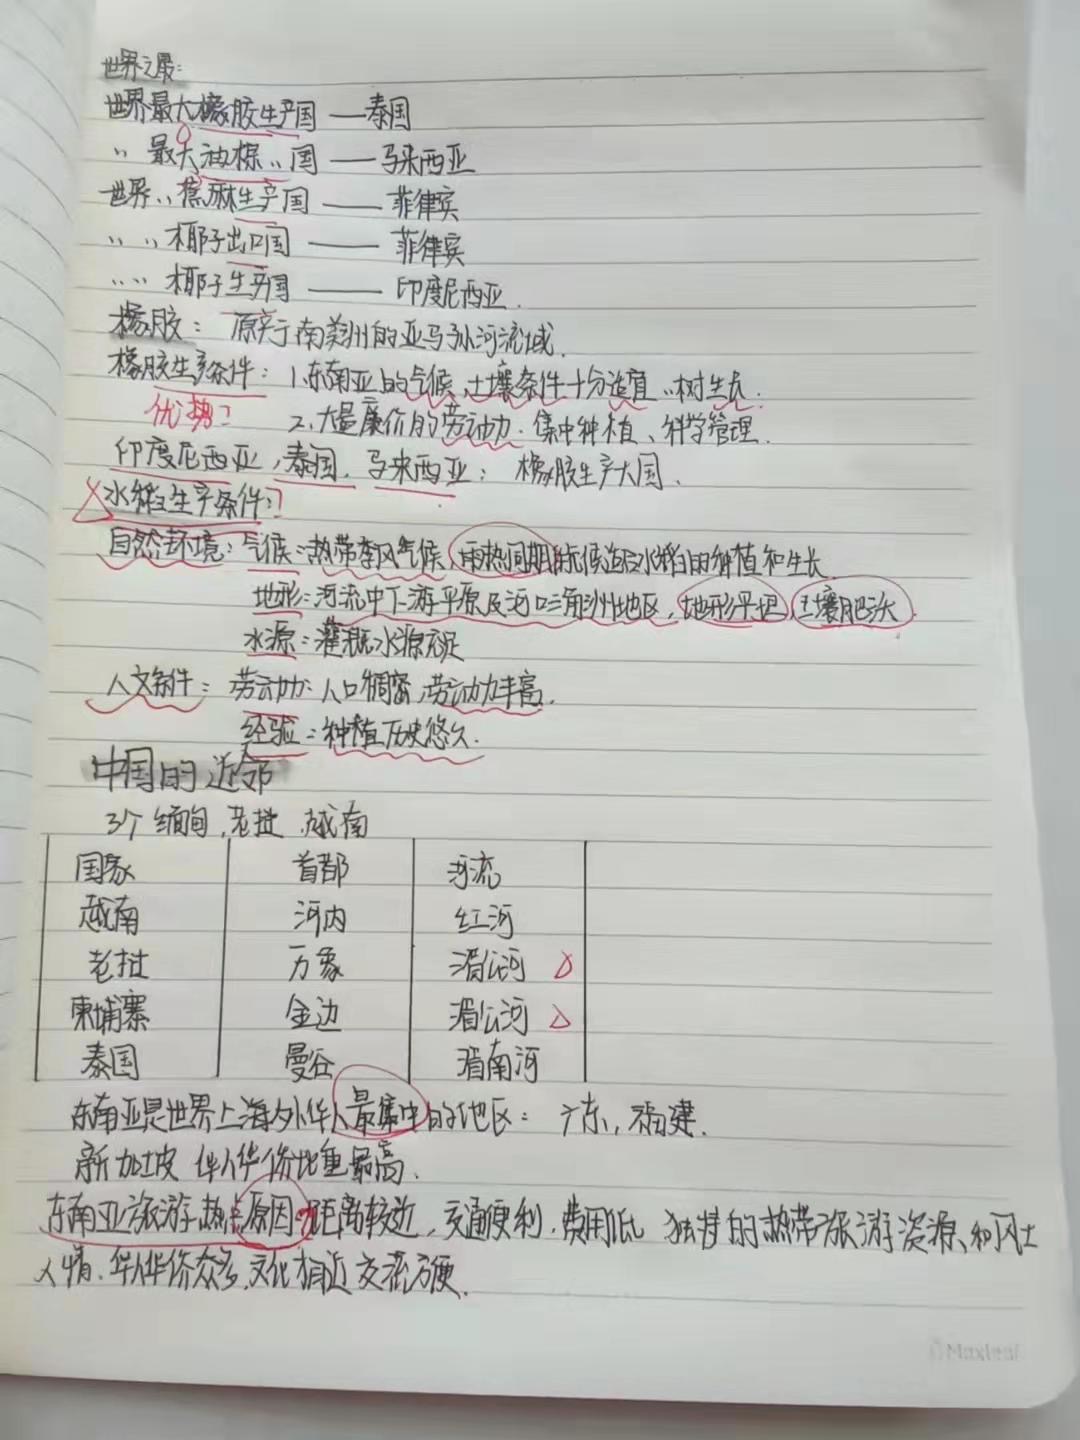 世界之最:
世界最大橡胶生产国 — 泰国
〃 最大油棕〃国 — 马来西亚
世界〃蕉麻生产国 — 菲律宾
〃 〃椰子出口国 — 菲律宾
〃 〃 椰子生产国 — 印度尼西亚.
橡胶: 原产于南美州的亚马孙河流域.
橡胶生产条件: 1.东南亚的气候、土壤条件十分适宜〃树生长.
优势? 2.大量廉价的劳动力. 集中种植、科学管理.
印度尼西亚,泰国.马来西亚: 橡胶生产大国.
水稻生产条件:?
自然环境: 气候:热带季风气候,雨热同期的气候适应水稻的种植和生长
地形:河流中下游平原及河口三角洲地区,地形平坦,土壤肥沃.
水源:灌溉水源充足
人文条件: 劳动力:人口稠密,劳动力丰富.
经验:种植历史悠久.
中国的近邻
3个 缅甸,老挝.越南
国家 首都 河流
越南 河内 红河
老挝 万象 湄公河
柬埔寨 金边 湄公河
泰国 曼谷 湄南河
东南亚是世界上海外华人最集中的地区: 广东,福建.
新加坡 华人华侨比重最高.
东南亚旅游热点原因:距离较近,交通便利.费用低 独特的热带旅游资源、和风土
人情.华人华侨众多.文化相近交流方便.
Maxleaf